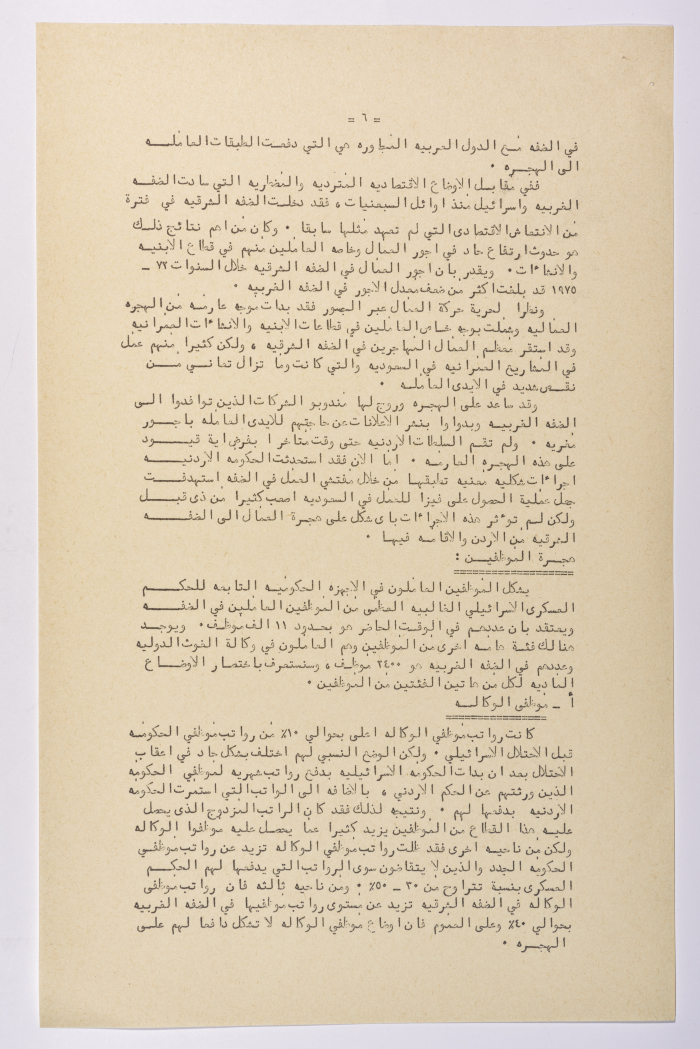 = ٦ =
في الضفه مع الدول العربيه المجاوره هي التي دفعت الطبقات العاملـــه
الى الهجـره ٠
ففي مقابـل الاوضاع الاقتصاديه المترديه والمضاربه التي سادت الضفـه
الغربيه واسرائيل منذ اوائل السبعينيات ، فقد دخلت الضفه الشرقيه في فترة
من الانتعاش الاقتصادى التي لم تعهد مثلها سابقا ٠ وكان من اهم نتائج ذلـك
هو حدوث ارتفاع حاد في اجور العمال وخاصه العاملين منهم في قطاع الابنيـه
والانشاءات ٠ ويقدر بأن اجور العمال في الضفه الشرقيه خلال السنوات ٧٣ ــ
١٩٧٥ قد بلغت اكثر من ضعف معدل الاجور في الضفه الغربيه ٠
ونظرا لحرية حركة العمال عبر الجسور فقد بدات موجه عارمـه من الهجره
العماليه وشملت بوجه خـاص العاملين في قطاعات الابنيه والانشاءات العمرانيه
وقد استقر معظـم العمال المهاجرين في الضفه الشرقيه ، ولكن كثيرا منهـم عمل
في المشاريع العمرانيه في السعوديه والتي كانت وما تزال تعانـي مـــن
نقـص شديد في الايدى العاملـه ٠
وقد ساعد على الهجره وروج لها مندوبو الشركات الذين توافدوا الـى
الضفه الغربيـه وبدواوا بنشر الاعلانات عن حاجتهم للايدى العامله باجــور
مغريه ٠ ولم تقـم السلطات الاردنيه حتى وقت متاخر ا بفرض اية قيـــود
على هذه الهجره العارمـه ٠ اما الان فقد استحدثت الحكومه الاردنيـــه
اجراءات شكليه معنيه تطبقهـا من خلال مفتشي العمل في الضفه استهدفــت
جعل عملية الحصول على فيزا للعمل في السعوديه اصعب كثيرا من ذى قبــل
ولكن لـم توءثر هذه الاجراءات باى شكل على هجـرة العمال الى الضفـــه
الشرقيه من الاردن والاقامـه فيهـا ٠
هجـرة الموظفيـن :
يشكل الموظفين العاملون في الاجهزه الحكوميه التابعه للحكــــم
العسكرى الاسرائيلي الغالبيه العظمى من الموظفين العاملين في الضفــــه
ويعتقد بأن عددهم في الوقت الحاضر هو بحدود ١١ الف موظف ٠ ويوجـــد
هنالك فئـة هامـه اخرى من الموظفين وهم العاملون في وكالة الغوث الدوليه
وعددهم في الضفه الغربيه هو ٢٤٠٠ موظف ، وسنستعرف باختصار الاوضـــاع
الماديه لكل من هاتين الفئتين من الموظفين ٠
أ ــ موظفى الوكالـــه
كانت رواتب موظفي الوكاله اعلى بحوالي ١٠٪ من رواتب موظفي الحكومـه
قبل الاحتلال الاسرائيلي ٠ ولكن الوضع النسبي لهم اختلف بشكل حاد في اعقاب
الاحتلال بعد ان بدات الحكومه الاسرائيليه بدفع رواتب شهريه لموظفي الحكومه
الذين ورثتهم عن الحكم الاردني ، بالاضافه الى الواتب التي استمرت الحكومه
الاردنيه بدفعها لهم ٠ ونتيجه لذلك فقد كان الراتب المزدوج الذى يحصل
عليـه هذا القطاع من الموظفين يزيد كثيرا عما يحصل عليه موظفوا الوكاله
ولكن من ناحيـه اخرى فقد ظلت رواتب موظفي الوكاله تزيد عن رواتب موظفــي
الحكومه الجدد والذين لا يتقاضون سوى الرواتب التي يدفعها لهم الحكـــم
العسكرى بنسبة تتراوح من ٣٠ ــ ٥٠٪ ٠ ومن ناحيه ثالثه فان رواتب موظفى
الوكاله في الضفه الشرقيه تزيد عن مستوى رواتب موظفيها في الضفه الغربيه
بحوالي ٤٠٪ وعلى العموم فان اوضاع موظفي الوكاله لا تشكل دافعا لهم علــى
الهجـره ٠